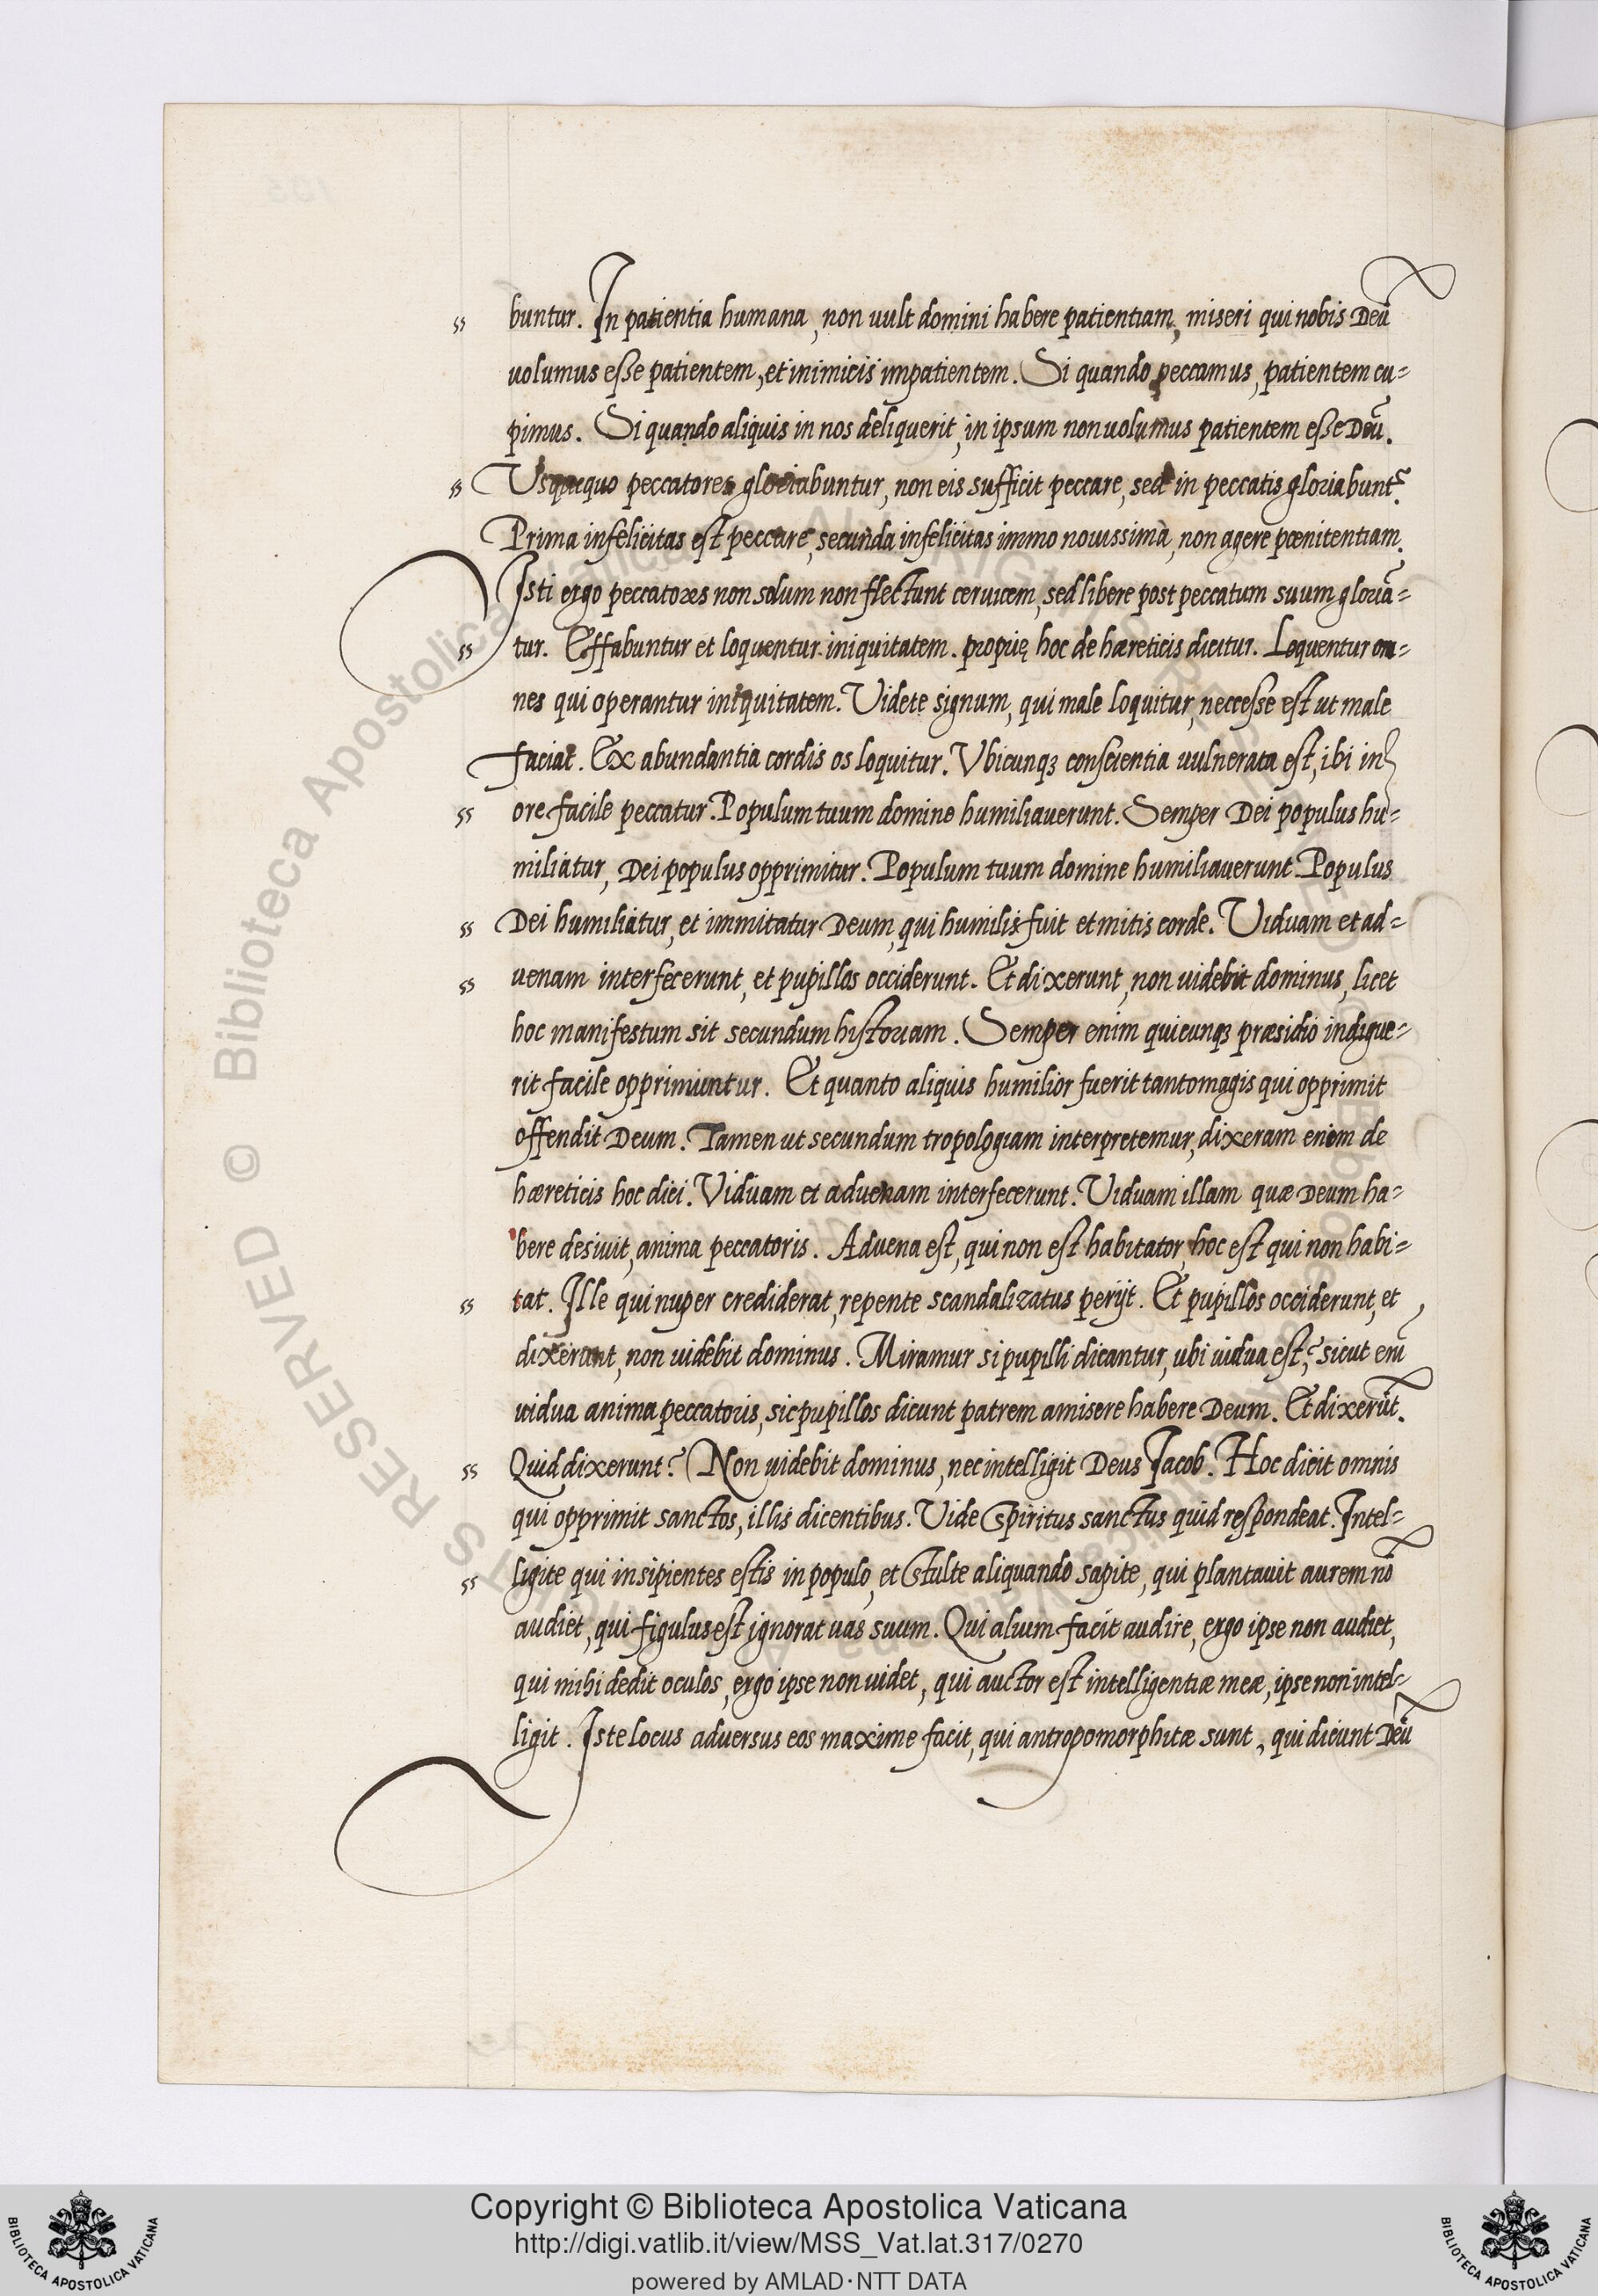 buntur. In patientia humana, non uult domini habere patientiam, miseri qui nobis Deū
uolumus eße patientem, et inimicis impatientem. Si quando peccamus, patientem cu=
pimus. Si quando aliquis in nos deliquerit, in ipsum non uolumus patientem eße Deū.
Usquequo peccatores gloriabuntur, non eis sufficit peccare, sed in peccatis gloriabunt?
Prima infelicitas est peccare, secunda infelicitas immo nouissima, non agere pœnitentiam.
Isti ergo peccatores non solum non flectunt ceruicem, sed libere post peccatum suum gloriā=
tur. Effabuntur et loquentur iniquitatem. propię hoc de hæreticis dicitur. Loquentur om=
nes qui operantur iniquitatem. Videte signum, qui male loquitur, neccesse est ut male
faciat. Ex abundantia cordis os loquitur. Vbicunqꝫ conscientia uulnerata est, ibi in
ore facile peccatur. Populum tuum domine humiliauerunt. Semper Dei populus hu=
miliatur, Dei populus opprimitur. Populum tuum domine humiliauerunt. Populus
Dei humiliatur, et immitatur Deum, qui humilis fuit et mitis corde. Viduam et ad=
uenam interfecerunt, et pupillos occiderunt. Et dixerunt, non uidebit dominus, licet
hoc manifestum sit secundum historiam. Semper enim quicunqꝫ præsidio indigue=
rit facile opprimuntur. Et quanto aliquis humilior fuerit tantomagis qui opprimit
offendit Deum. Tamen ut secundum tropologiam interpretemur, dixeram enim de
hæreticis hoc dici. Viduam et aduenam interfecerunt. Viduam illam quæ Deum ha=
bere desiuit, anima peccatoris. Aduena est, qui non est habitator, hoc est qui non habi=
tat. Ille qui nuper crediderat, repente scandalizatus perijt. Et pupillos occiderunt, et
dixerunt, non uidebit dominus. Miramur si pupilli dicantur, ubi uidua est? sicut eni
uidua anima peccatoris, sic pupillos dicunt patrem amisere habere Deum. Et dixerūt.
Quid dixerunt? Non uidebit dominus, nec intelligit Deus Jacob. Hoc dicit omnis
qui opprimit sanctos, illis dicentibus. Vide Spiritus sanctus quid respondeat. Intel=
ligite qui insipientes estis in populo, et Stulte aliquando sapite, qui plantauit aurem nō
audiet, qui figulus est ignorat uas suum. Qui alium facit audire, ergo ipse non audiet,
qui mihi dedit oculos, ergo ipse non uidet, qui auctor est intelligentiæ meæ, ipse non intel=
ligit. Iste locus aduersus eos maxime facit, qui antropomorphitæ sunt, qui dicunt Deū
Copyright © Biblioteca Apostolica Vaticana
http://digi.vatlib.it/view/MSS_Vat.lat.317/0270
powered by AMLAD·NTT DATA